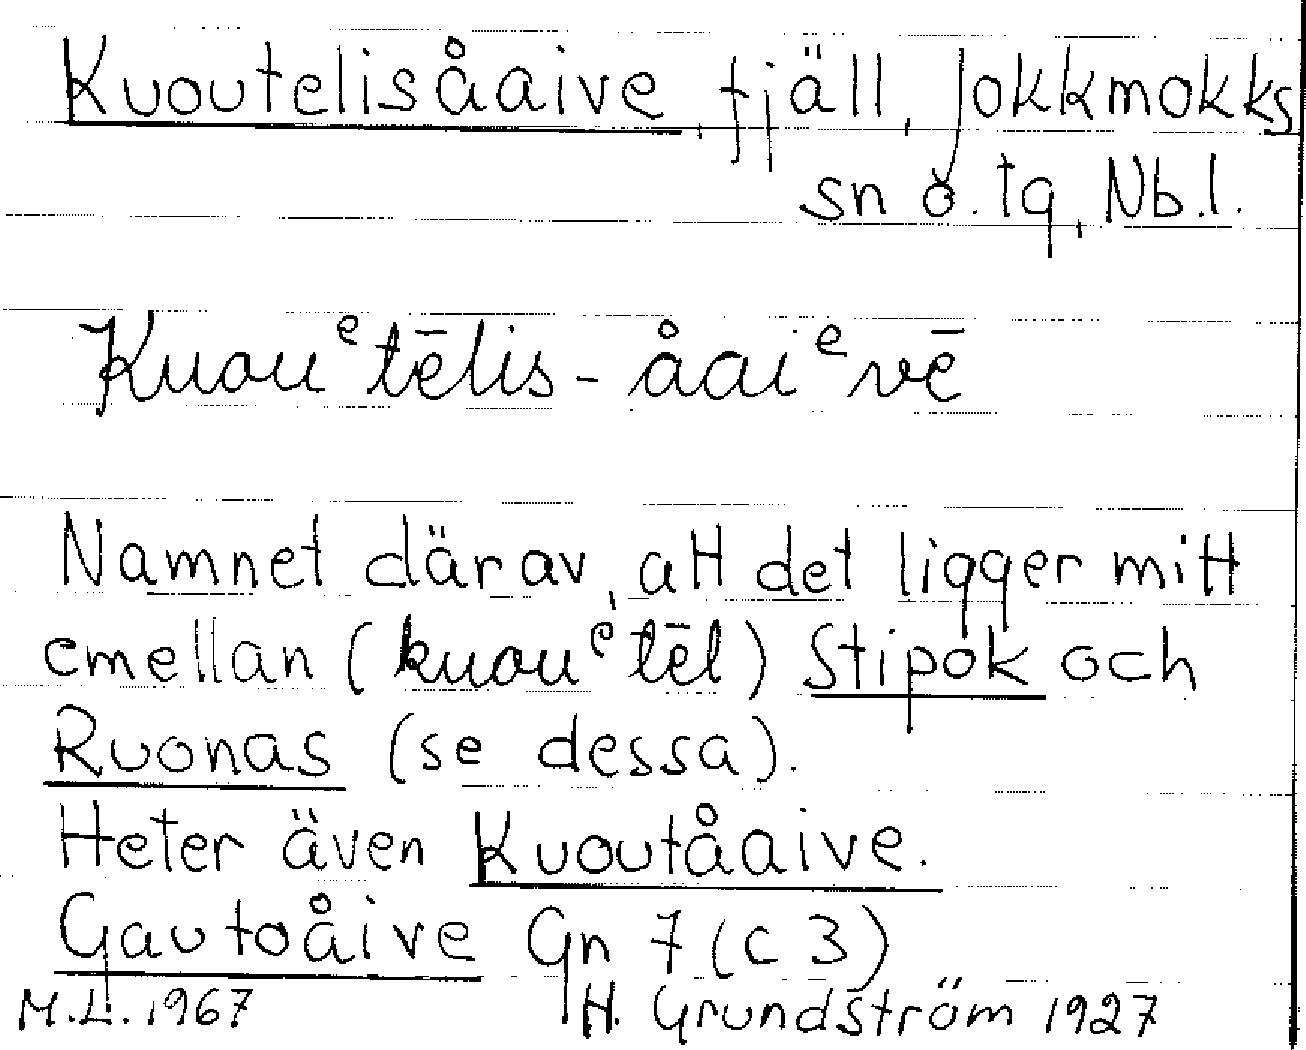 Kuoutelisåaive, fjäll, Jokkmokks
sn o. tg, Nb.l.
Kuouᵉtēlis-åaiᵉvē
Namnet därav, att det ligger mitt
emellan (kuouᵉtēl) Stipok och
Ruonas (se dessa).
Heter även Kuoutåaive.
Gautoåive Gn 7 (C 3)
M.L. 1967 H. Grundström 1927